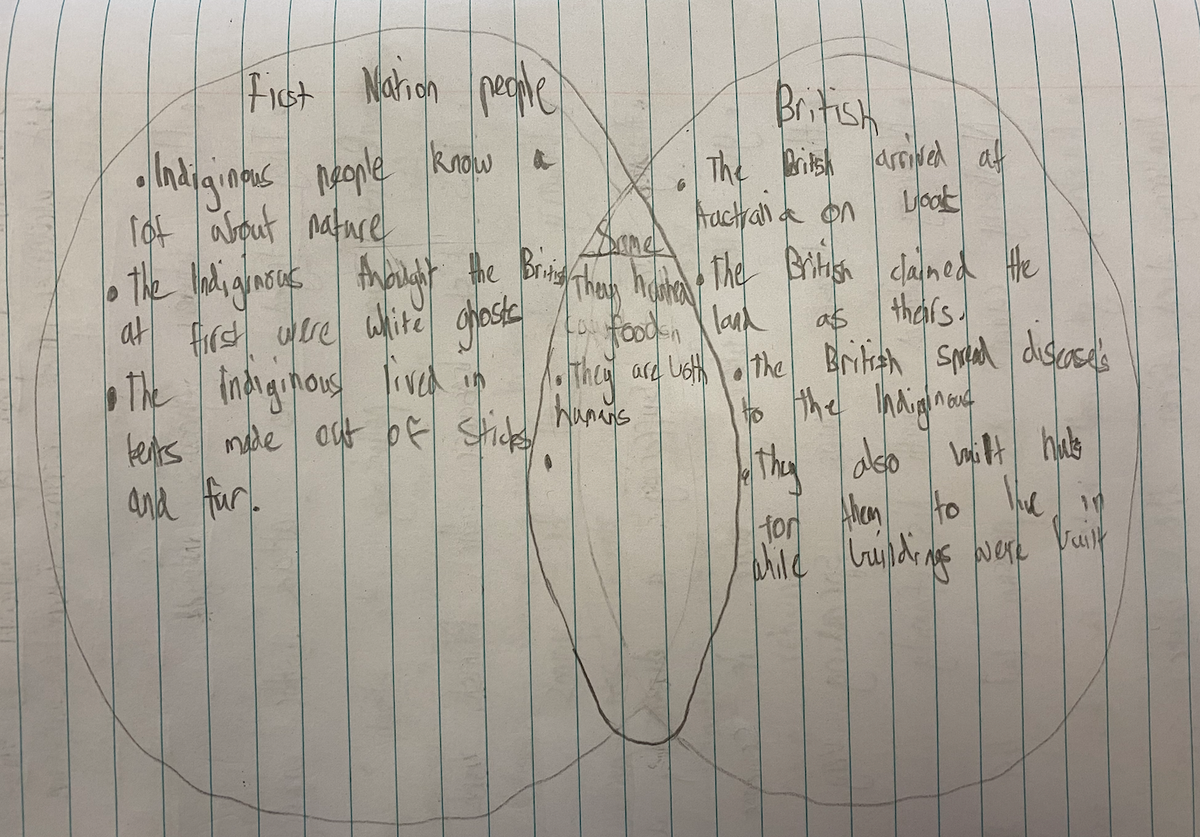 First Nation people
• Indiginous people know a
lot about nature
• The Indiginous thought the British
at first were white ghosts
• The Indiginous lived in
tents made out of sticks
and fur.
Same
They hunted
food
• They are both
humans
•
British
• The British arrived at
on boat
• The British claimed the
land as theirs.
• The British spread disease's
to the Indiginous
• They also built huts
for them to live in
while buildings were built